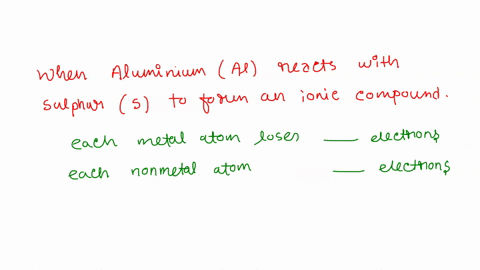 When Aluminium (Al) reacts with
sulphur (S) to form an ionic compound.
each metal atom loses ___ electrons
each nonmetal atom ___ electrons